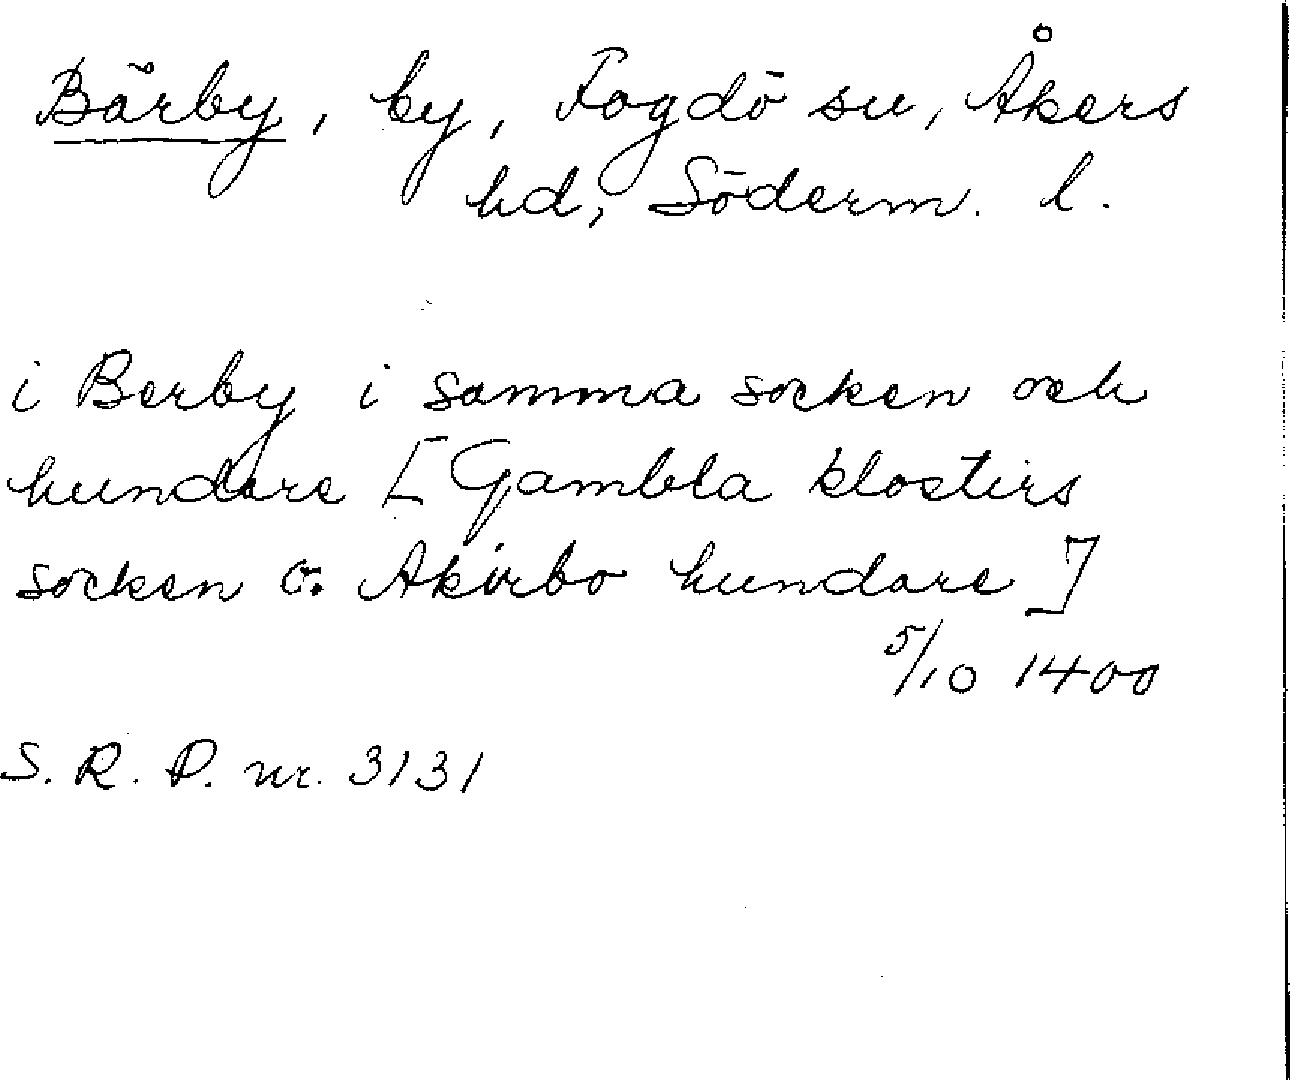 Bärby, by, Fogdö su, Åkers
hd, Söderm. l.
i Berby i samma socken och
hundare [Gambla klostirs
socken o. Akirbo hundare]
5/10 1400
S. R. P. nr. 3131